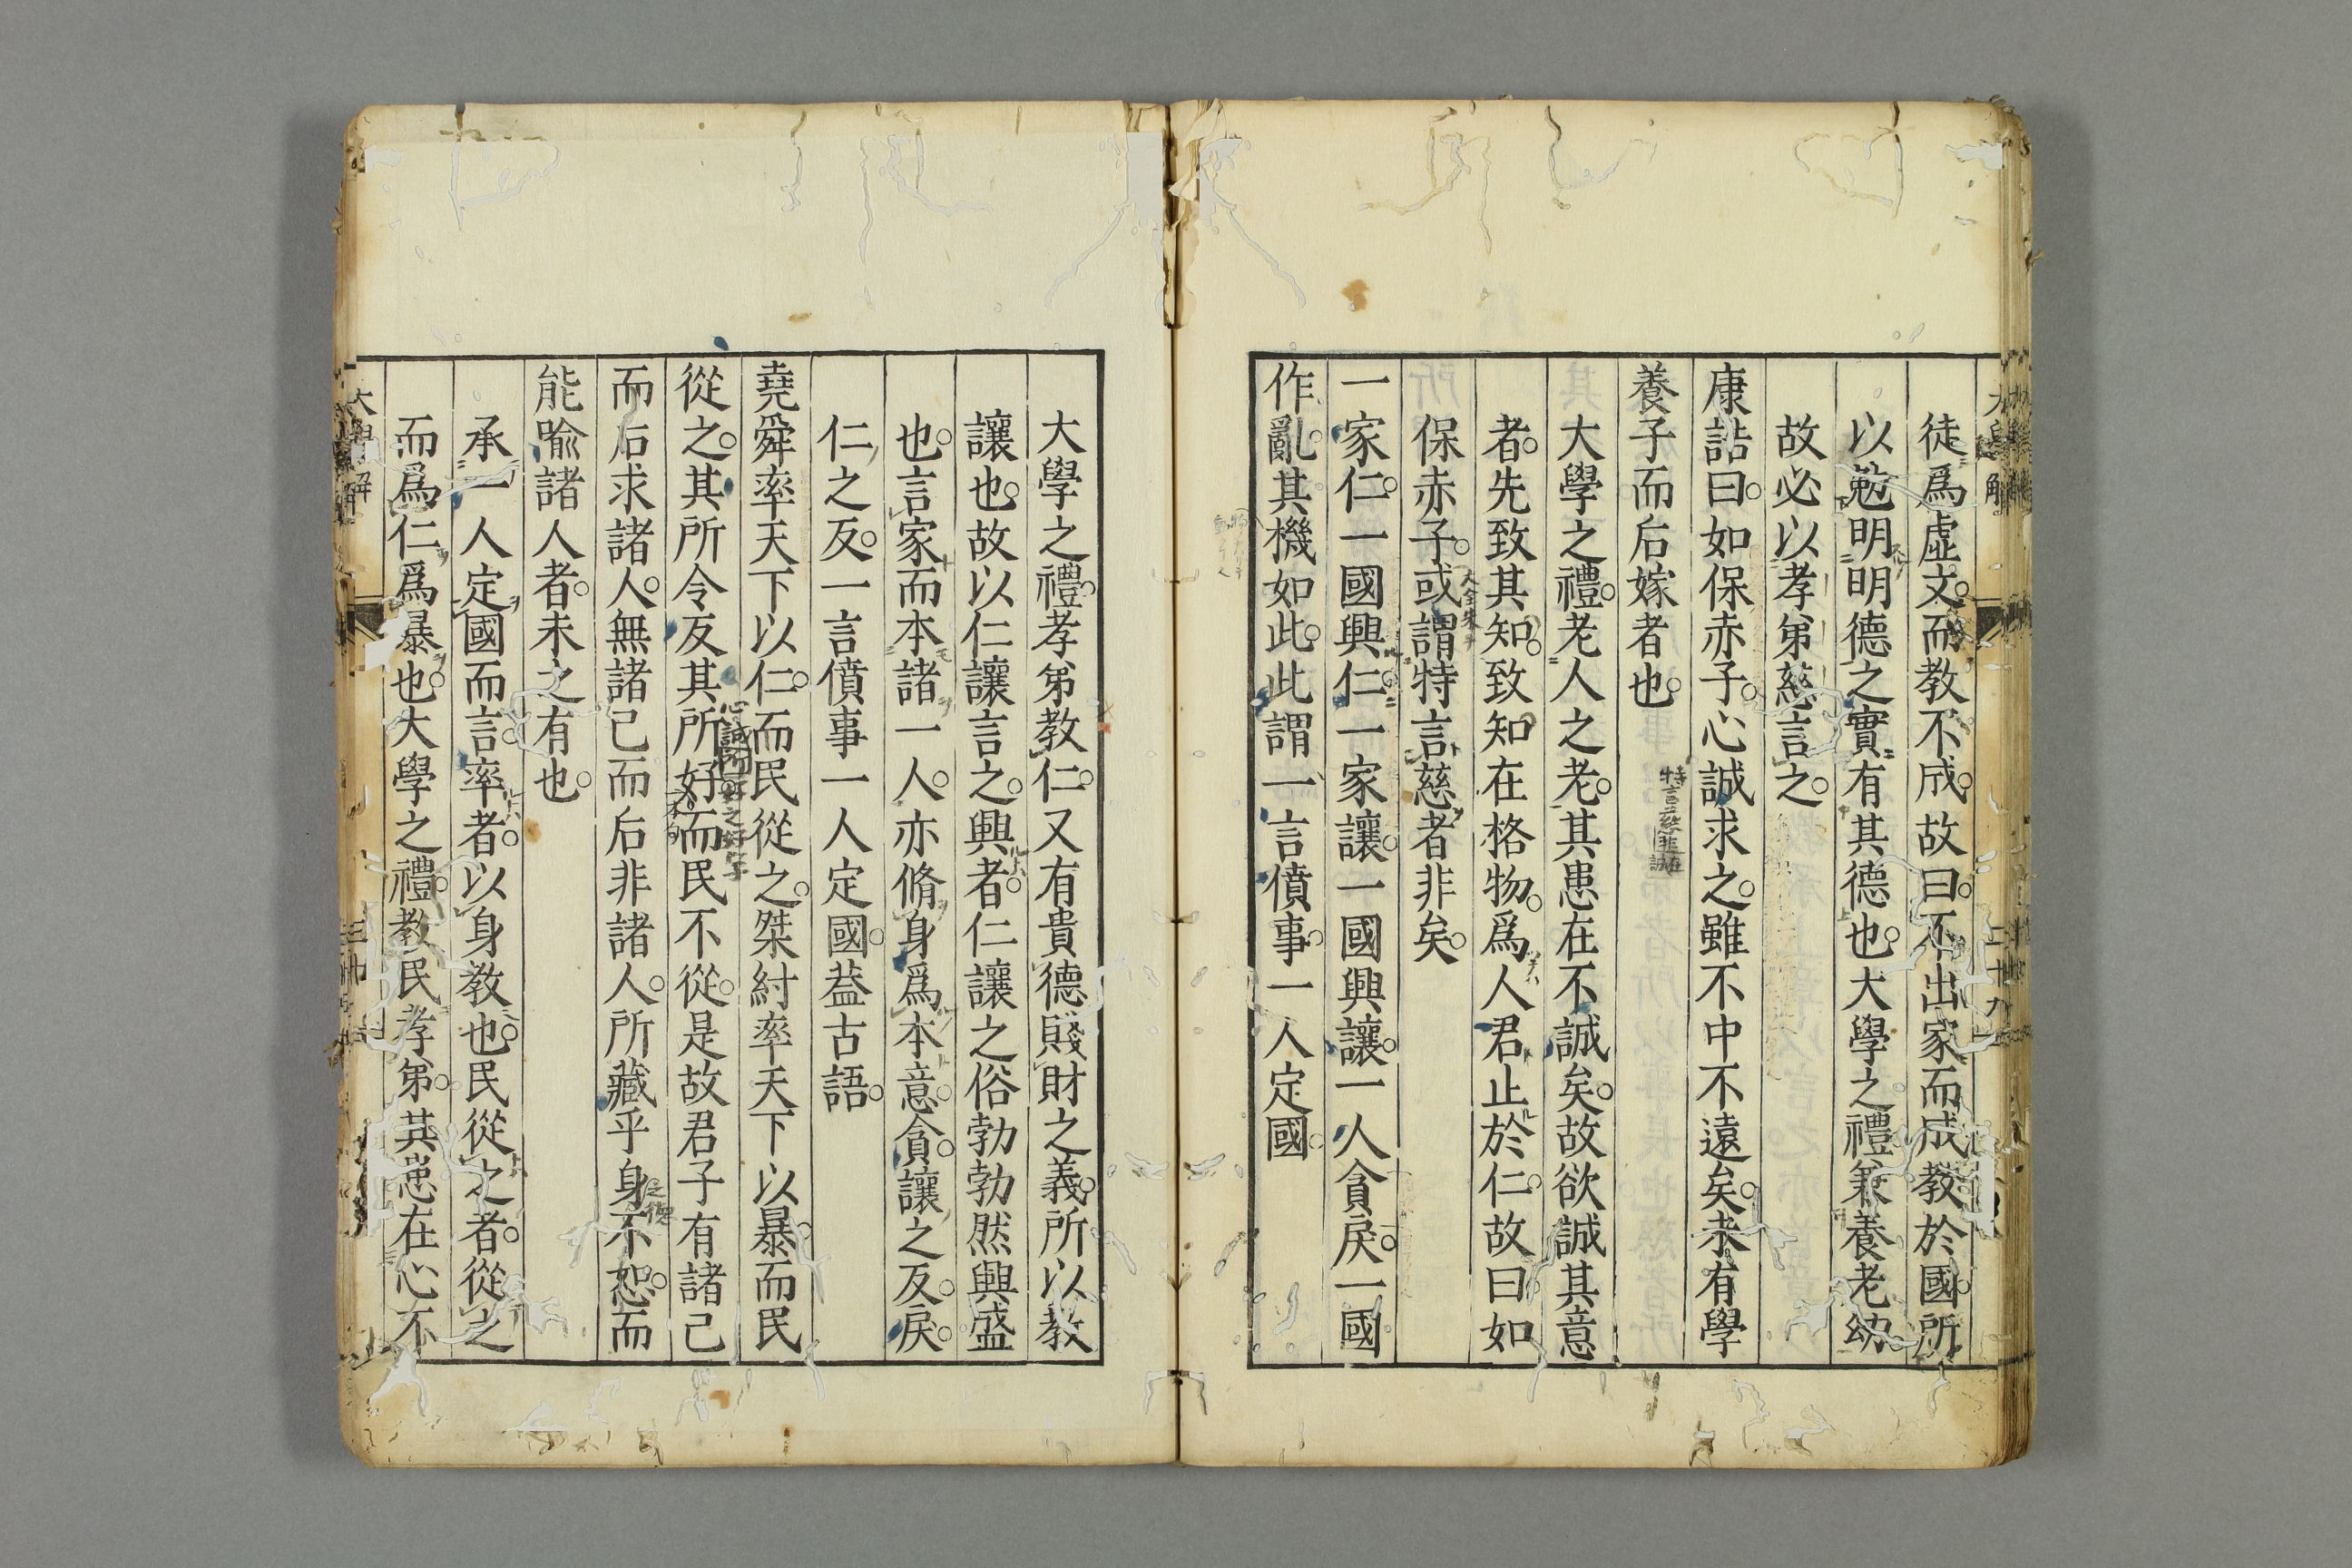 徒爲虛文而教不成故曰不出家而成教於國所
以勉明明德之實有其德也大學之禮兼養老幼
故必以孝弟慈言之
康誥曰如保赤子心誠求之雖不中不遠矣未有學
養子而后嫁者也
大學之禮老人之老其患在不誠矣故欲誠其意
者先致其知致知在格物爲人君止於仁故曰如
保赤子或謂特言慈者非矣
一家仁一國興仁一家讓一國興讓一人貪戾一國
作亂其機如此此謂一言僨事一人定國
大學之禮孝弟教仁又有貴德賤財之義所以教
讓也故以仁讓言之興者仁讓之俗勃勃然興盛
也言家而本諸一人亦脩身爲本意貪讓之反戾
仁之反一言僨事一人定國葢古語
堯舜率天下以仁而民從之桀紂率天下以暴而民
從之其所令反其所好而民不從是故君子有諸己
而后求諸人無諸己而后非諸人所藏乎身不恕而
能喩諸人者未之有也
承一人定國而言率者以身教也民從之者從之
而爲仁爲暴也大學之禮教民孝弟其患在心不